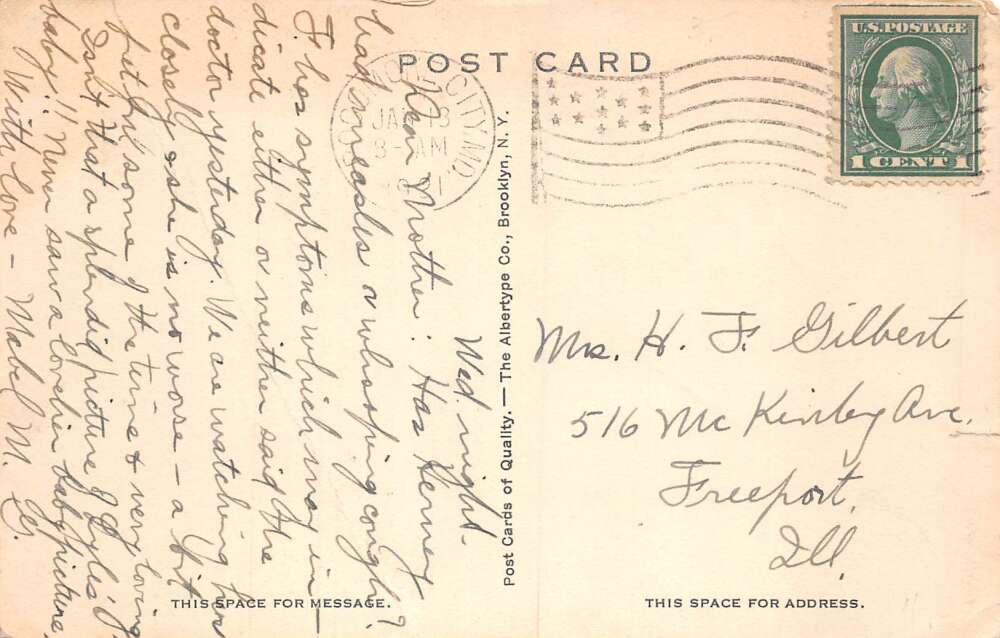 POST CARD
CITY, MO.
8-AM
U.S. POSTAGE
1 CENT 1
Wed. night.
Dear Mother: Has Henney
had measles or whooping cough?
J. has symptoms which may in-
dicate either or neither said the
doctor yesterday. We are watching her
closely as she is no worse - a bit
fretful some of the time & very loving
Isn't that a splendid picture of Gyles'
baby!! Never saw a lovelier baby picture.
With love - Mabel M. G.
Post Cards of Quality. — The Albertype Co., Brooklyn, N. Y.
Mrs. H. F. Gilbert
516 McKinley Ave.
Freeport,
Ill.
THIS SPACE FOR MESSAGE.
THIS SPACE FOR ADDRESS.